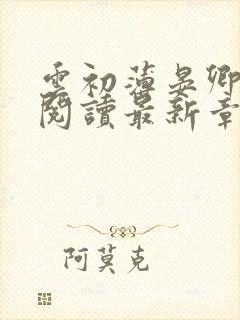 雲初薄晏卿
閱讀最新章
阿莫克